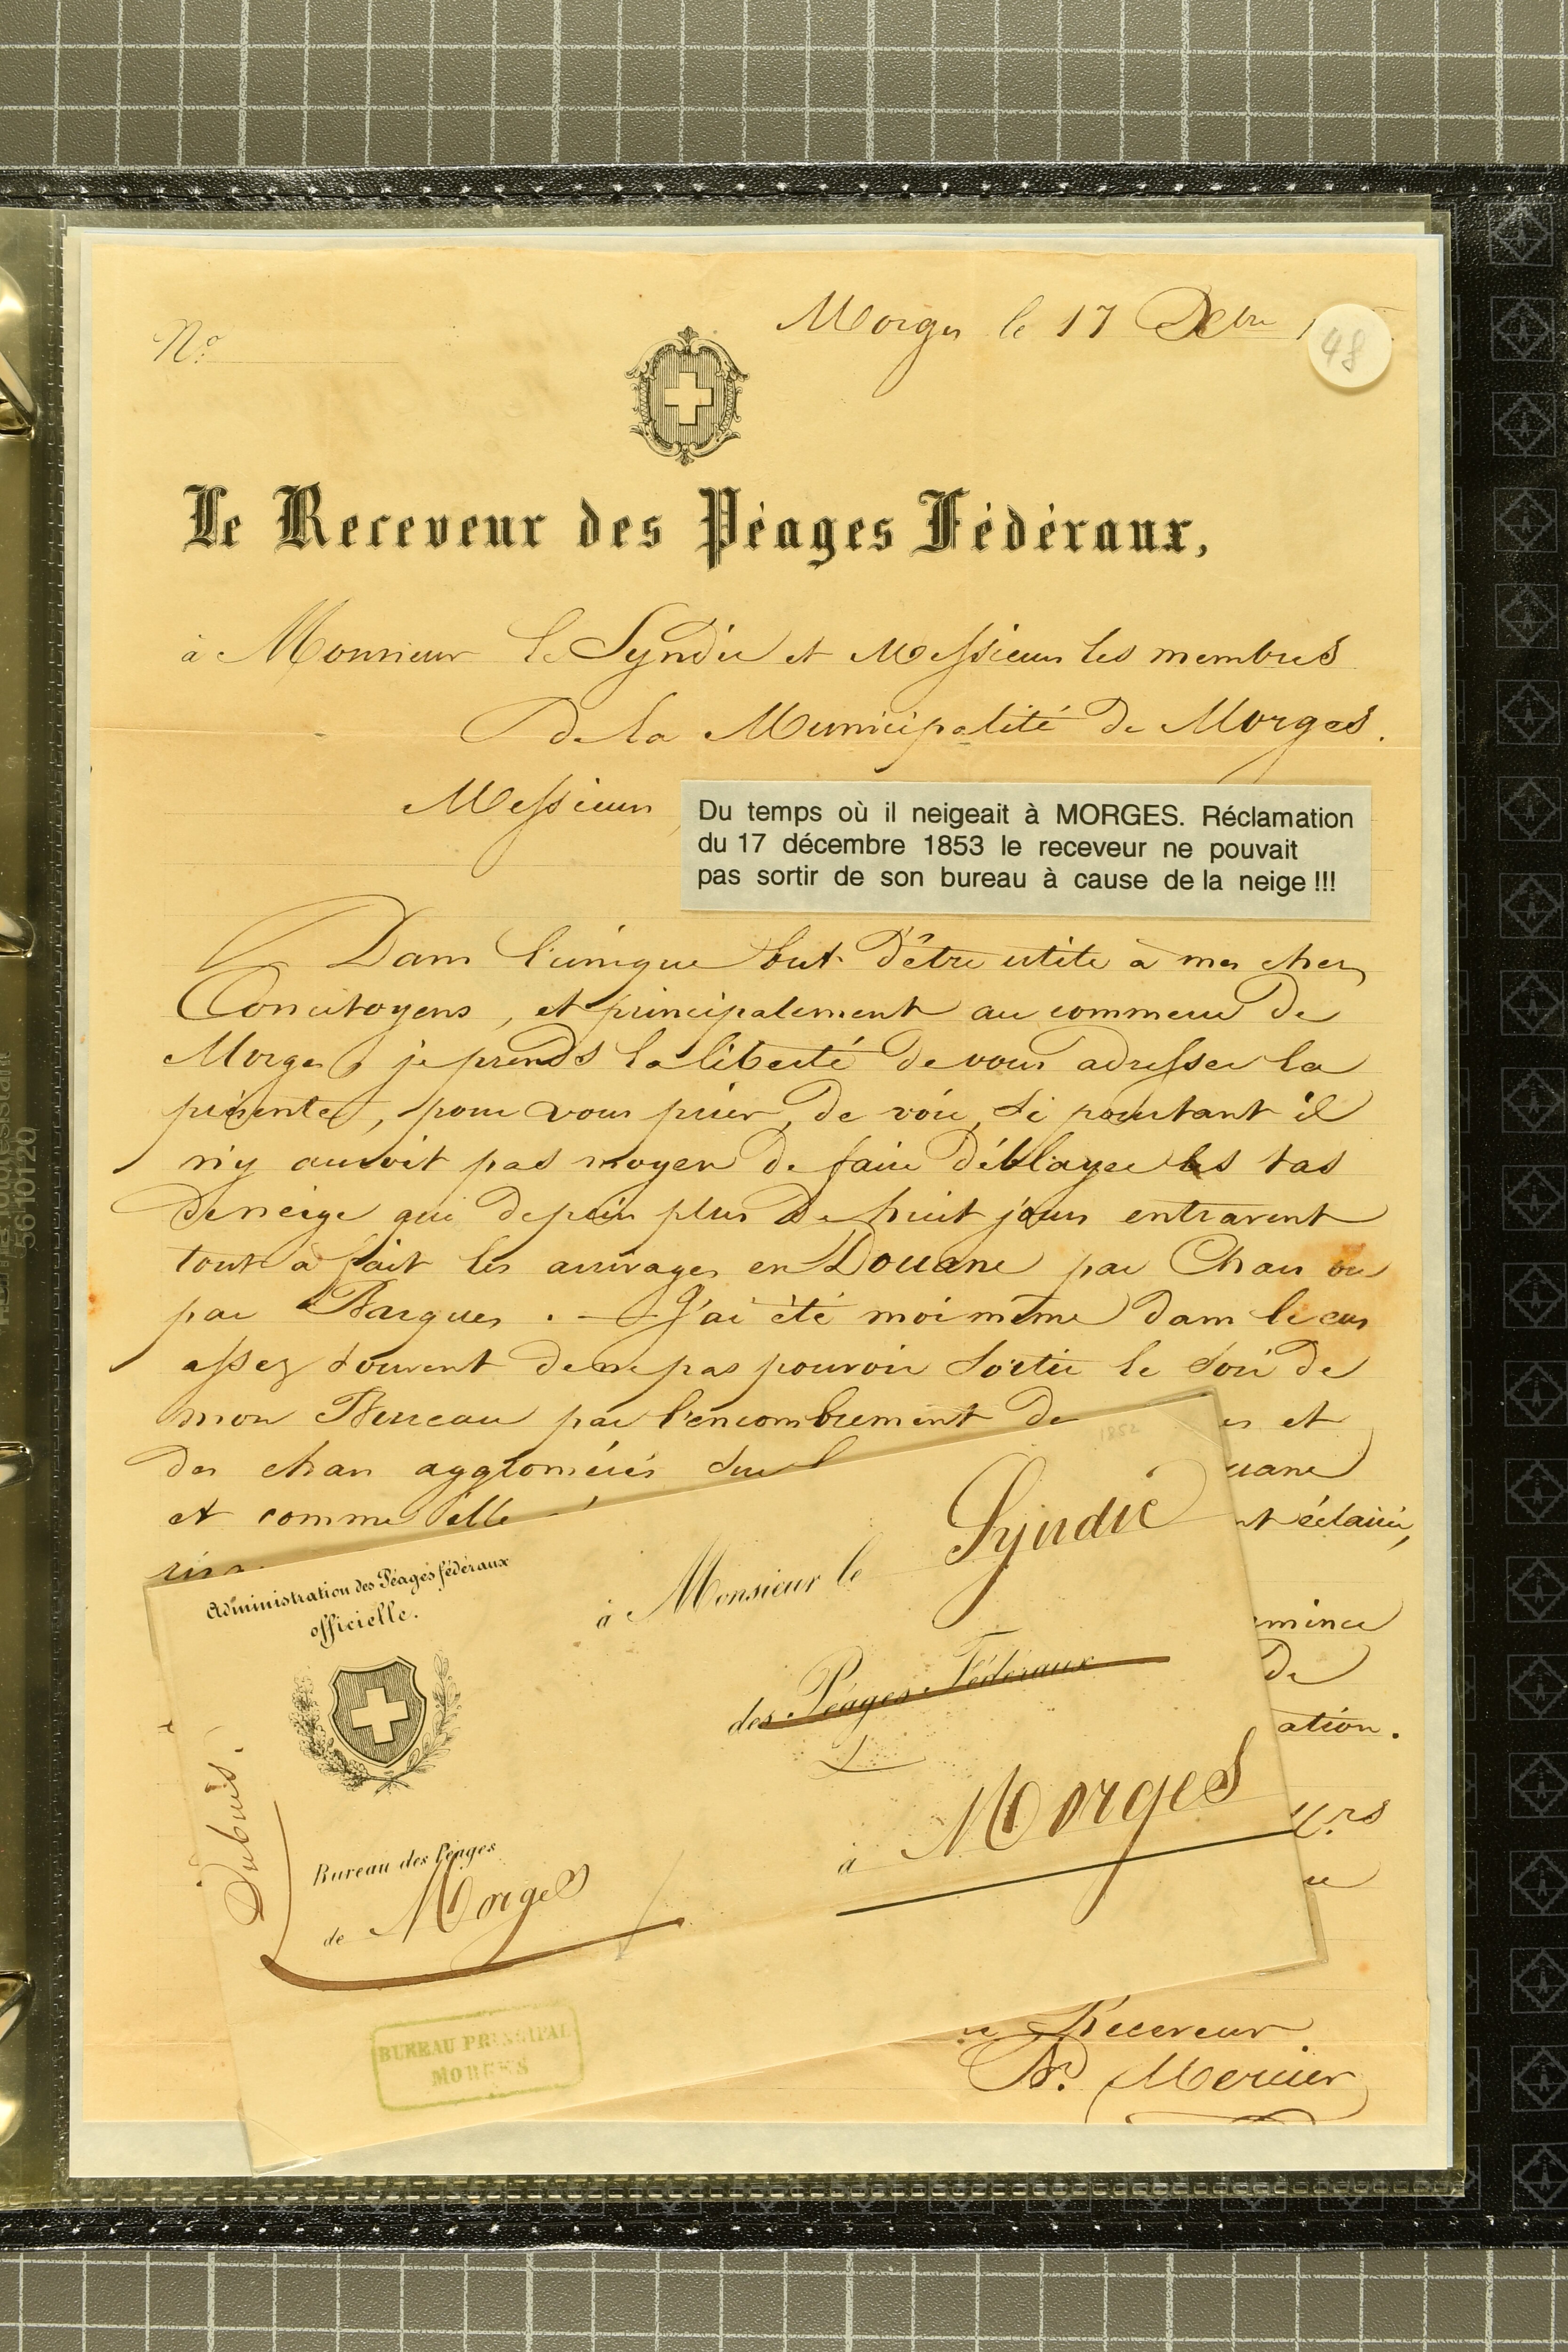 No.
Morges le 17 Xbre 1
48
Le Receveur des Péages Fédéraux,
à Monsieur le Syndic et Messieurs les membres
de la Municipalité de Morges.
Messieurs,
Du temps où il neigeait à MORGES. Réclamation
du 17 décembre 1853 le receveur ne pouvait
pas sortir de son bureau à cause de la neige !!!
Dans l'unique but d'être utile à mes chers
Concitoyens, et principalement au commerce de
Morges, je prends la liberté de vous adresser la
présente, pour vous prier, de voir, si pourtant il
n'y auroit pas moyen de faire déblayer les tas
de neige qui depuis plus de huit jours entravent
tout à fait les arrivages en Douane par Chars ou
par Barques. — J'ai été moi même dans le cas
assez souvent de ne pas pouvoir sortir le soir de
mon Bureau par l'encombrement de es et
des chars agglomérés sur l uane
et comme elle nt éclairée,
mince
de
ation.
Administration des Péages fédéraux
officielle.
à Monsieur le Syndic
des Péages Fédéraux
à Morges
Dubuis.
Bureau des Péages
de Morges
1852
BUREAU PRINCIPAL
MORGES
Receveur
Mercier